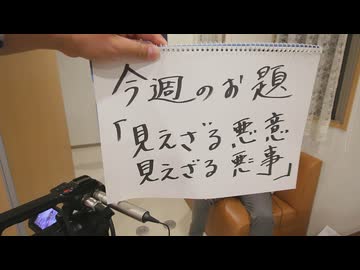 今週のお題
「見えざる悪意
見えざる悪事」